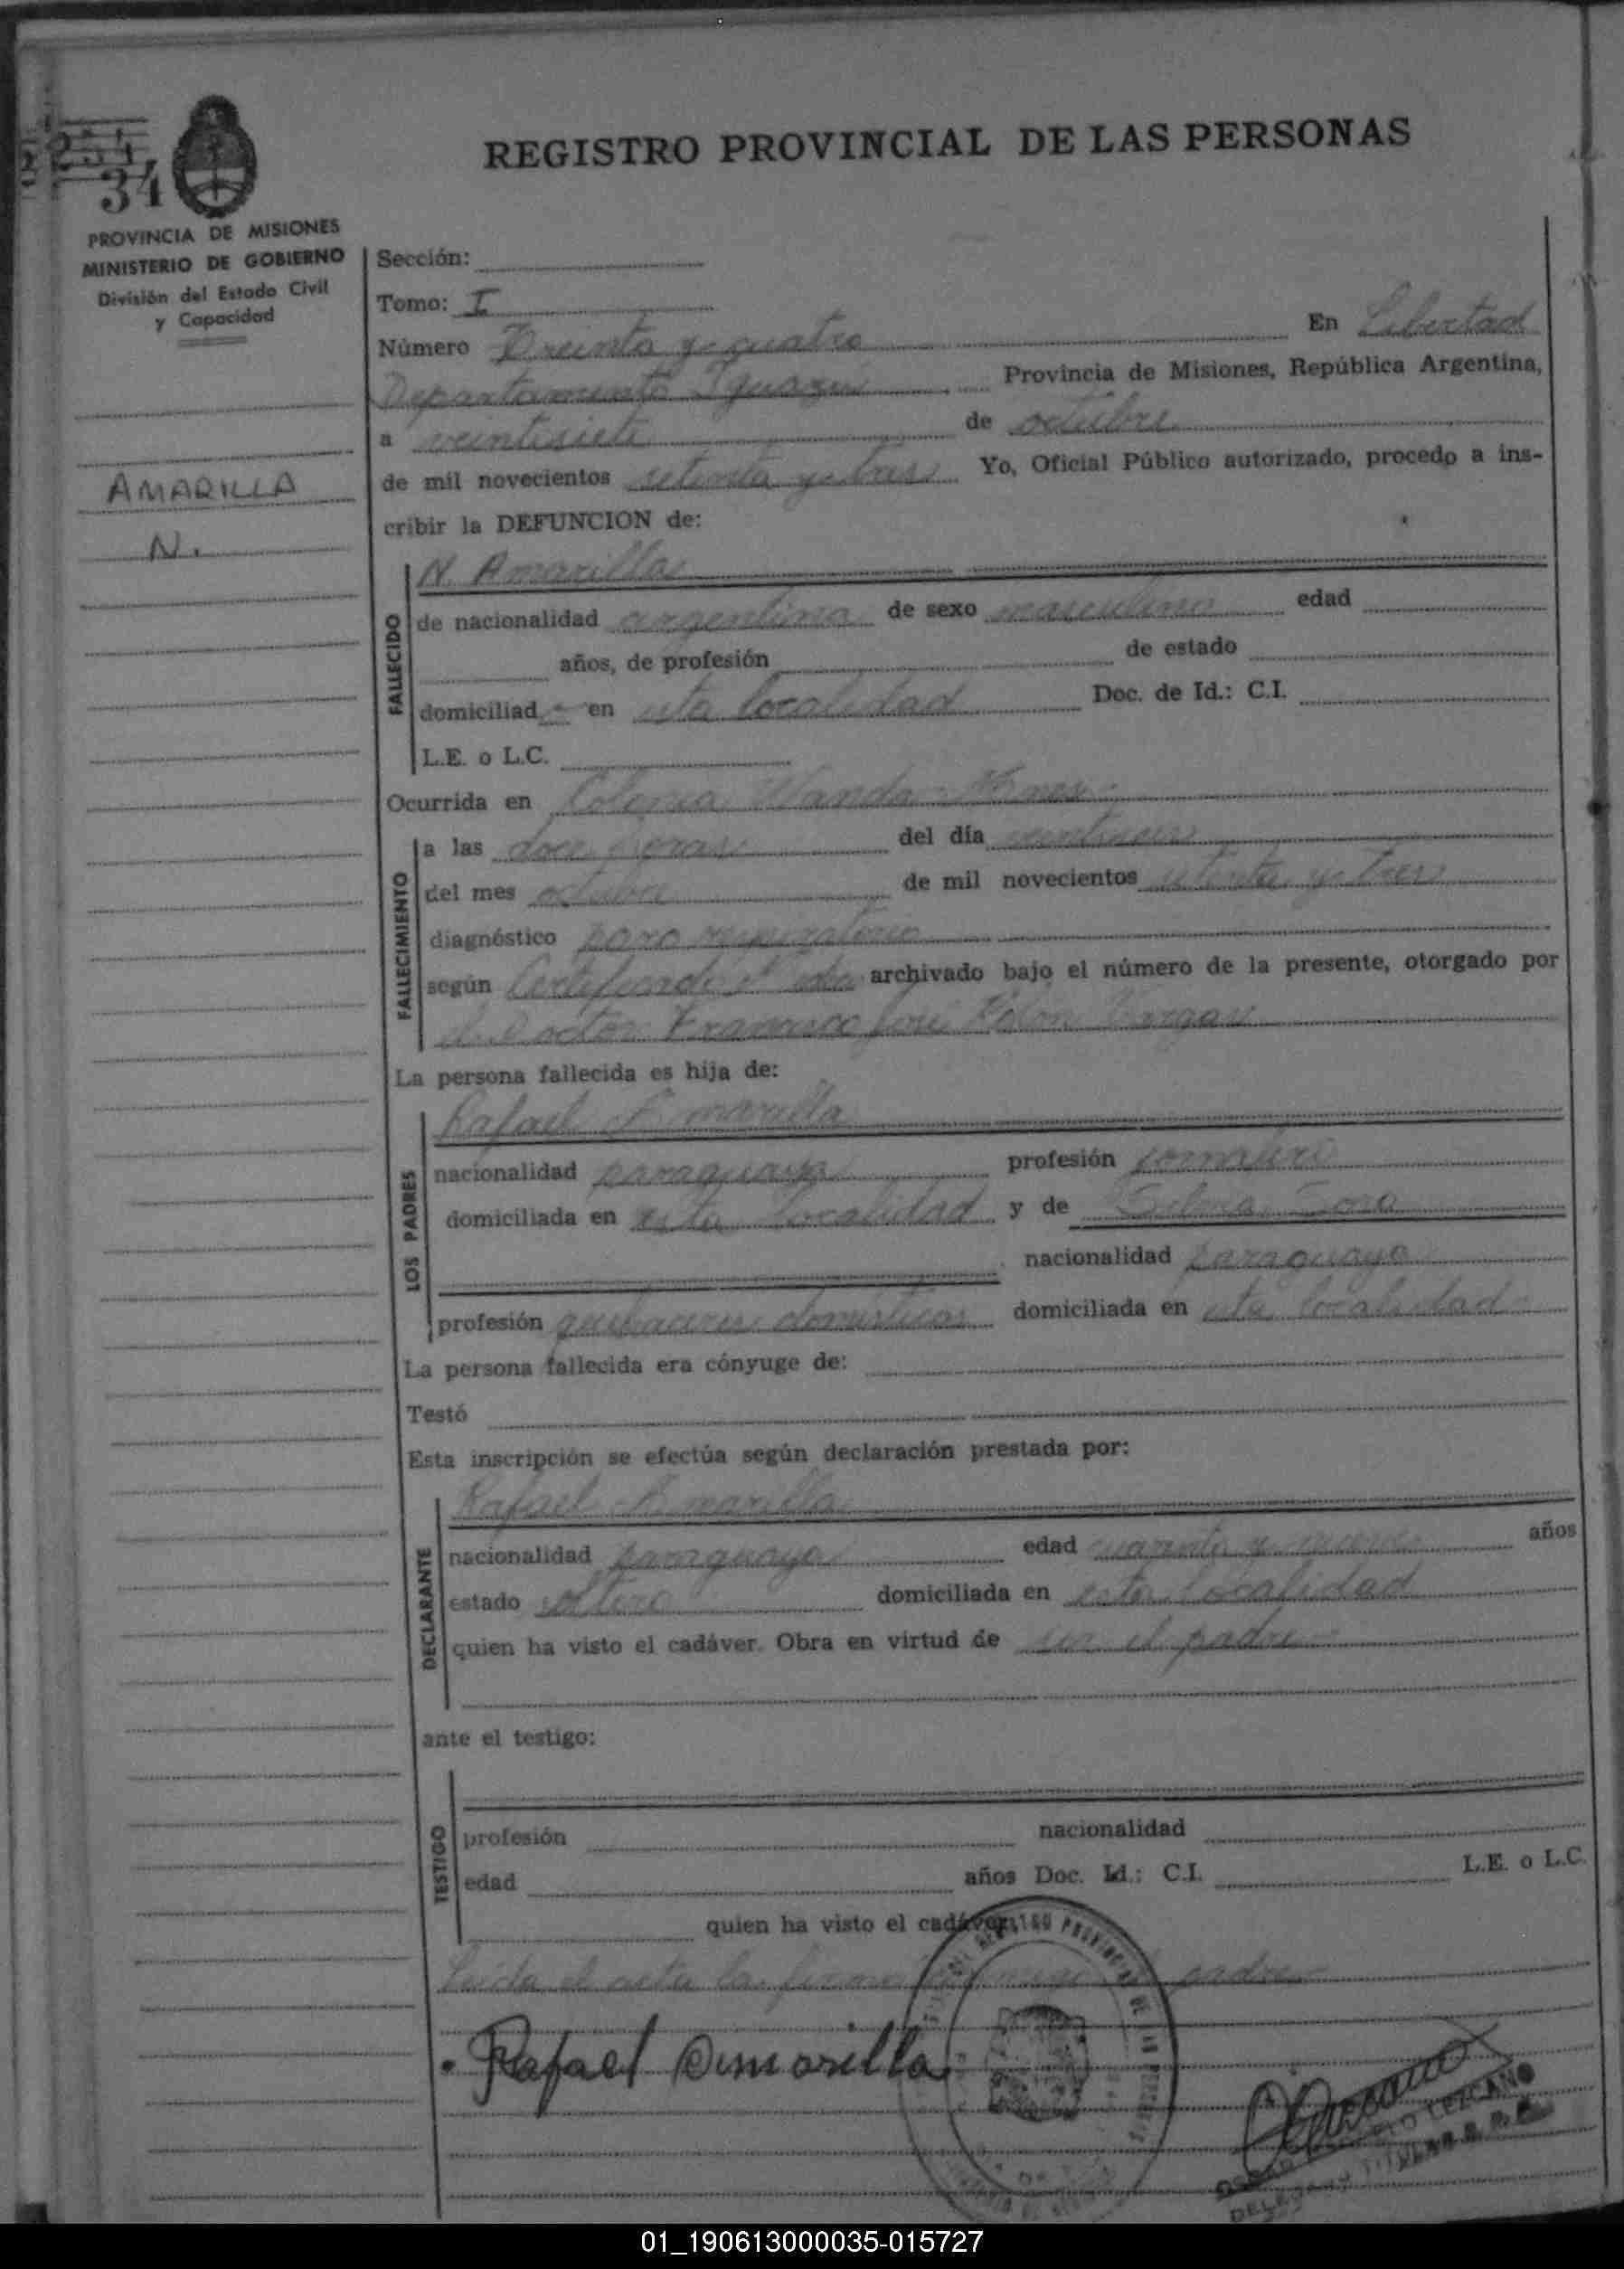 REGISTRO PROVINCIAL DE LAS PERSONAS
34
PROVINCIA DE MISIONES
MINISTERIO DE GOBIERNO
División del Estado Civil
y Capacidad
AMARILLA
N.
Sección:
Tomo: I
Número Treinta y cuatro En Libertad
Departamento Iguazú Provincia de Misiones, República Argentina,
a veintisiete de octubre
de mil novecientos setenta y tres Yo, Oficial Público autorizado, procedo a ins-
cribir la DEFUNCION de:
N. Amarilla
FALLECIDO
de nacionalidad argentina de sexo masculino edad
años, de profesión de estado
domiciliad en esta localidad Doc. de Id.: C.I.
L.E. o L.C.
Ocurrida en Colonia Wanda
FALLECIMIENTO
a las doce horas del día veintiseis
del mes octubre de mil novecientos setenta y tres
diagnóstico paro respiratorio
según Certificado archivado bajo el número de la presente, otorgado por
el Doctor Francisco José Vargas
La persona fallecida es hija de:
Rafael Amarilla
LOS PADRES
nacionalidad paraguaya profesión jornalero
domiciliada en esta localidad y de
nacionalidad paraguaya
profesión quehaceres domesticos domiciliada en esta localidad
La persona fallecida era cónyuge de:
Testó
Esta inscripción se efectúa según declaración prestada por:
Rafael Amarilla
DECLARANTE
nacionalidad paraguaya edad cuarenta y nueve años
estado soltero domiciliada en esta localidad
quien ha visto el cadáver. Obra en virtud de ser el padre
ante el testigo:
TESTIGO
profesión nacionalidad
edad años Doc. Id.: C.I. L.E. o L.C.
quien ha visto el cadáver.
Leida el acta la firma padre
Rafael Amarilla
LEZCANO
DELEGADO TITULAR
01_190613000035-015727